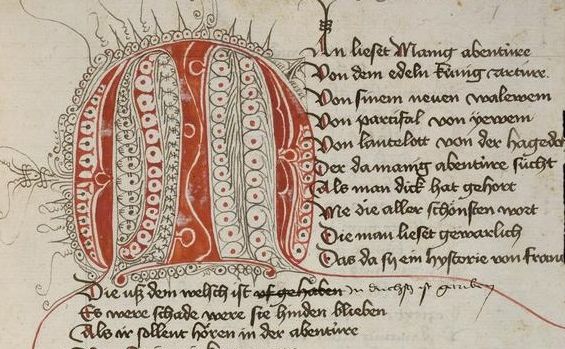 Man lieset Manig abentúre
Von dem edeln kúnig artúre
Von sinem neuen walewem
Von partifal von yewem
Von lantelott von der hagede
Der da manig abentúre sucht
Als man dick hat gehort
Die aller schönsten wort
Die man lieset gewarlich
Das da sy ein hystorie von Frau
Die uß dem welsch ist uf gehaben
Es were schade were sie hinden blieben
Als ir sollent hören in der abentúre